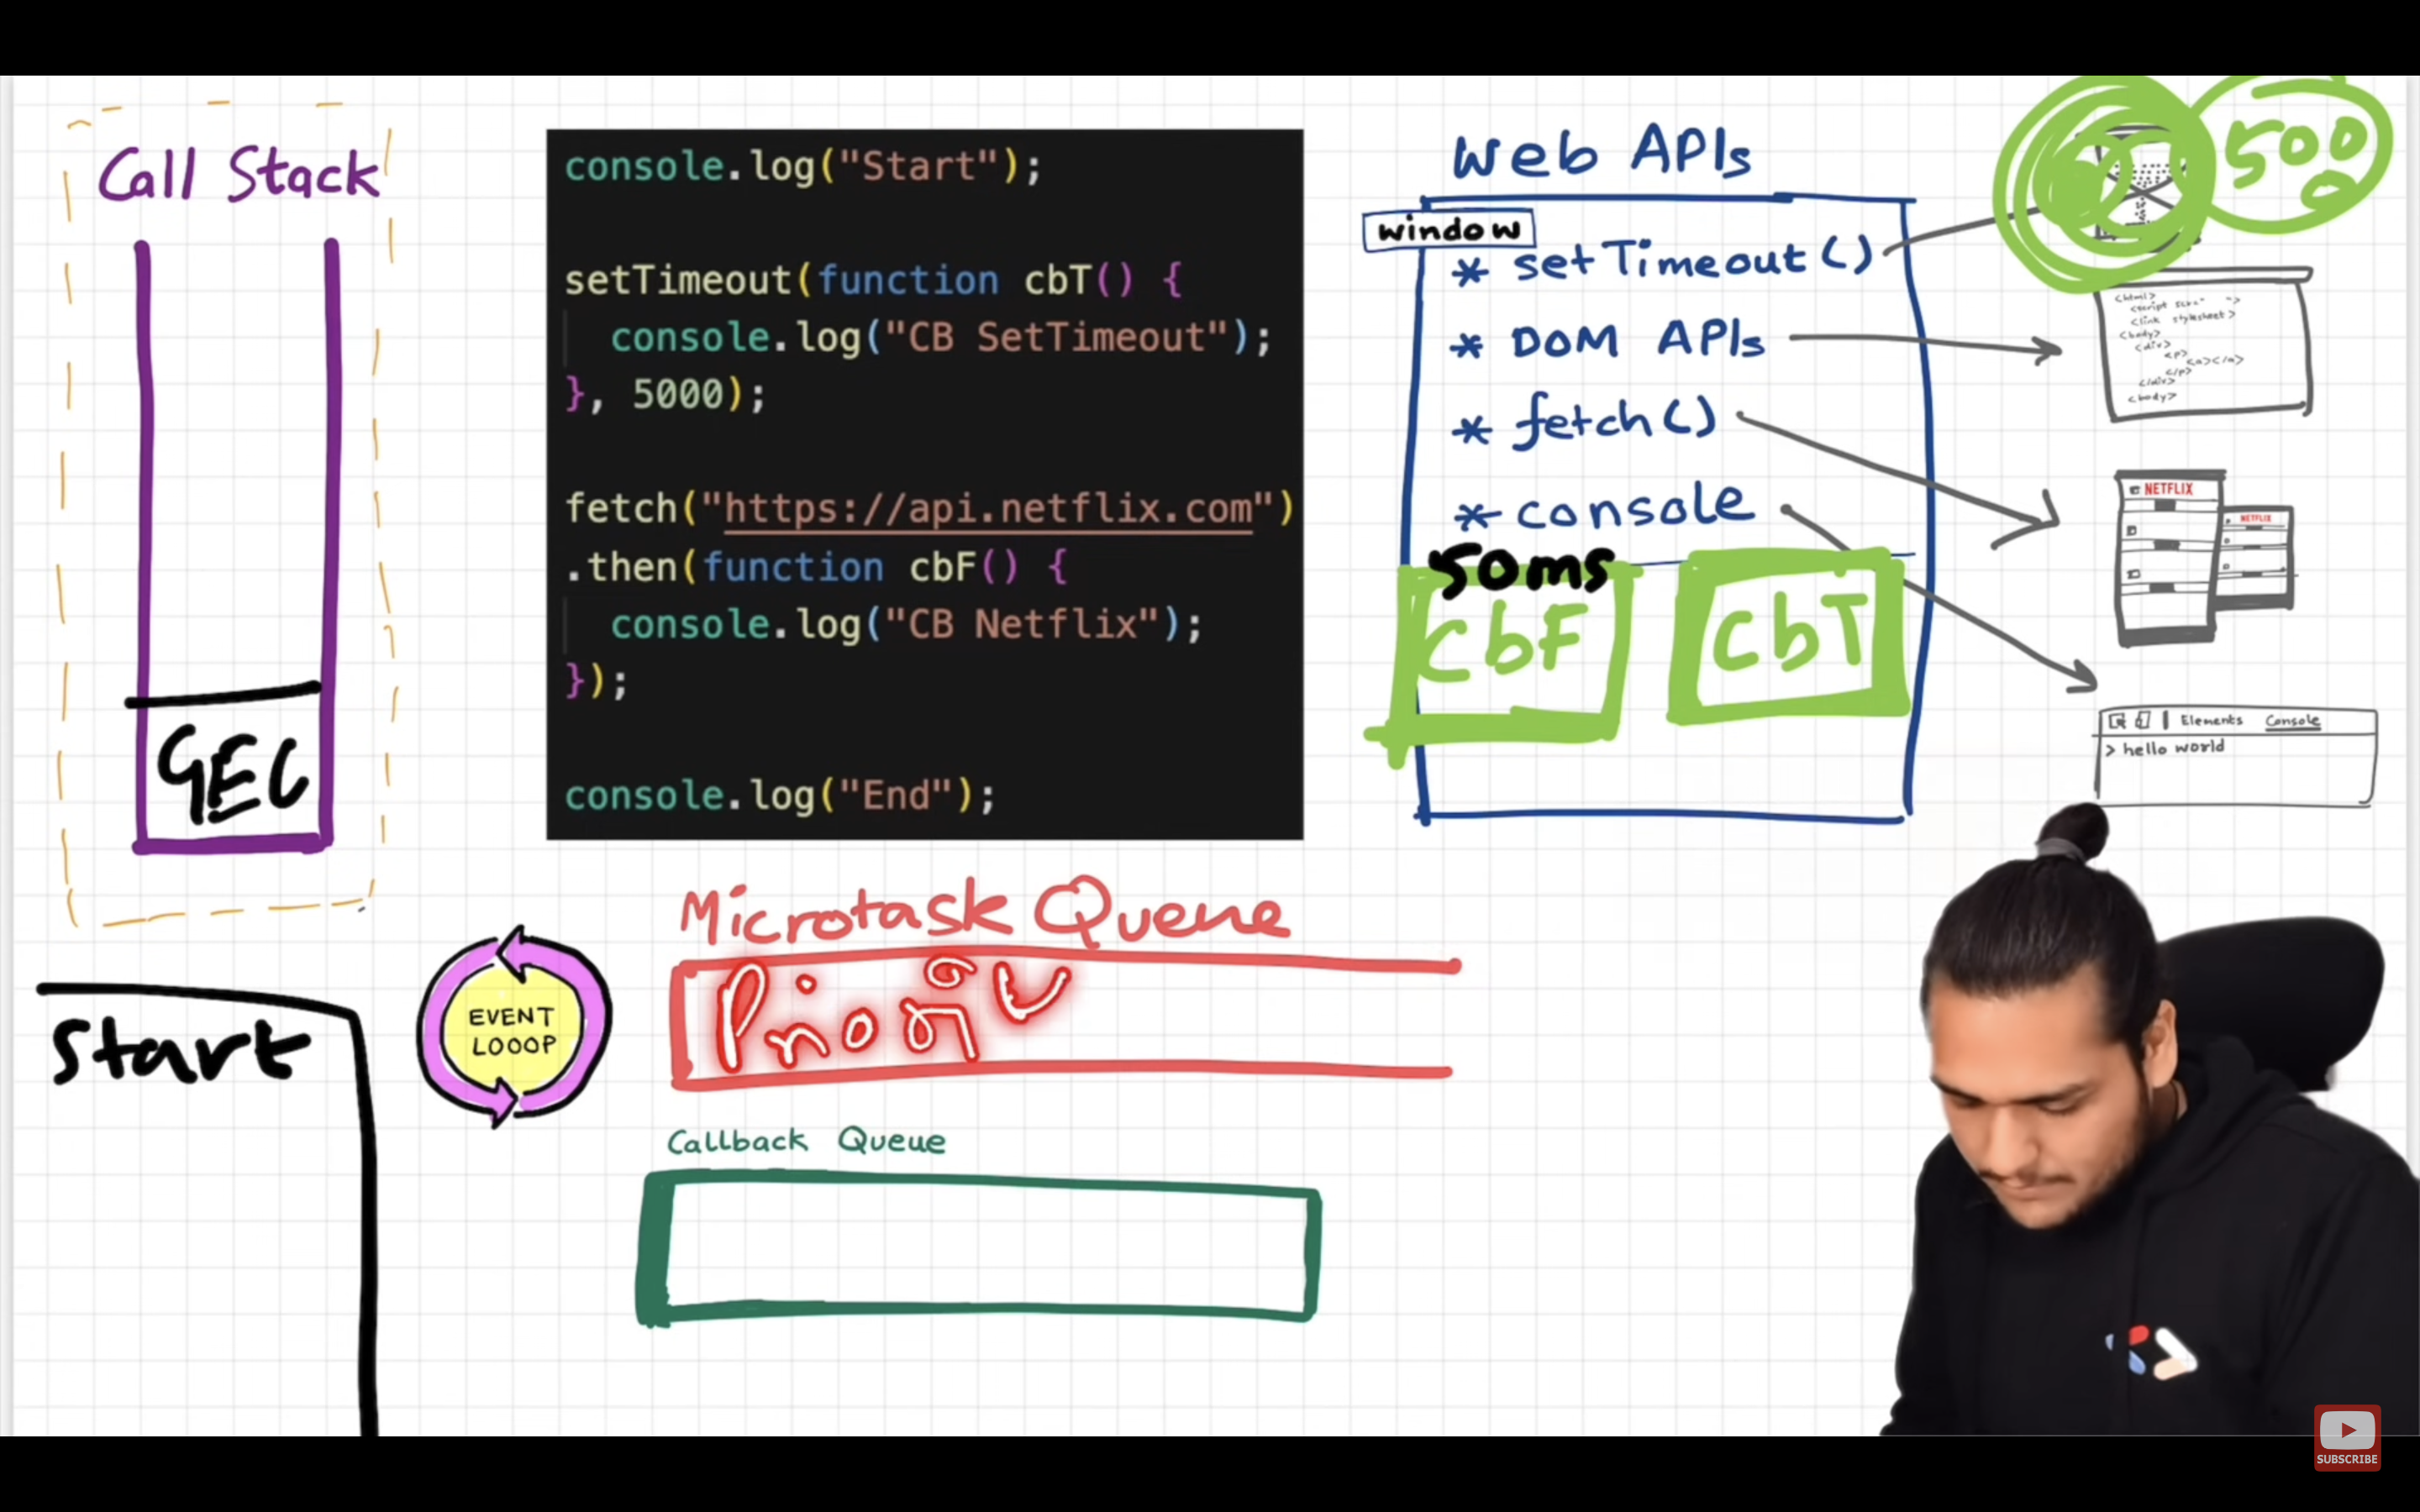 Call Stack
GEC
Start
console.log("Start");
setTimeout(function cbT() {
console.log("CB SetTimeout");
}, 5000);
fetch("https://api.netflix.com")
.then(function cbF() {
console.log("CB Netflix");
});
console.log("End");
Web APIs
window
* setTimeout()
* DOM APIs
* fetch()
* console
50ms
CbF
CbT
5000
<html>
<link stylesheet>
<body>
<div>
<p>
<a></a>
</p>
</div>
<body>
NETFLIX
NETFLIX
Elements Console
> hello world
EVENT
LOOOP
Microtask Queue
Callback Queue
SUBSCRIBE